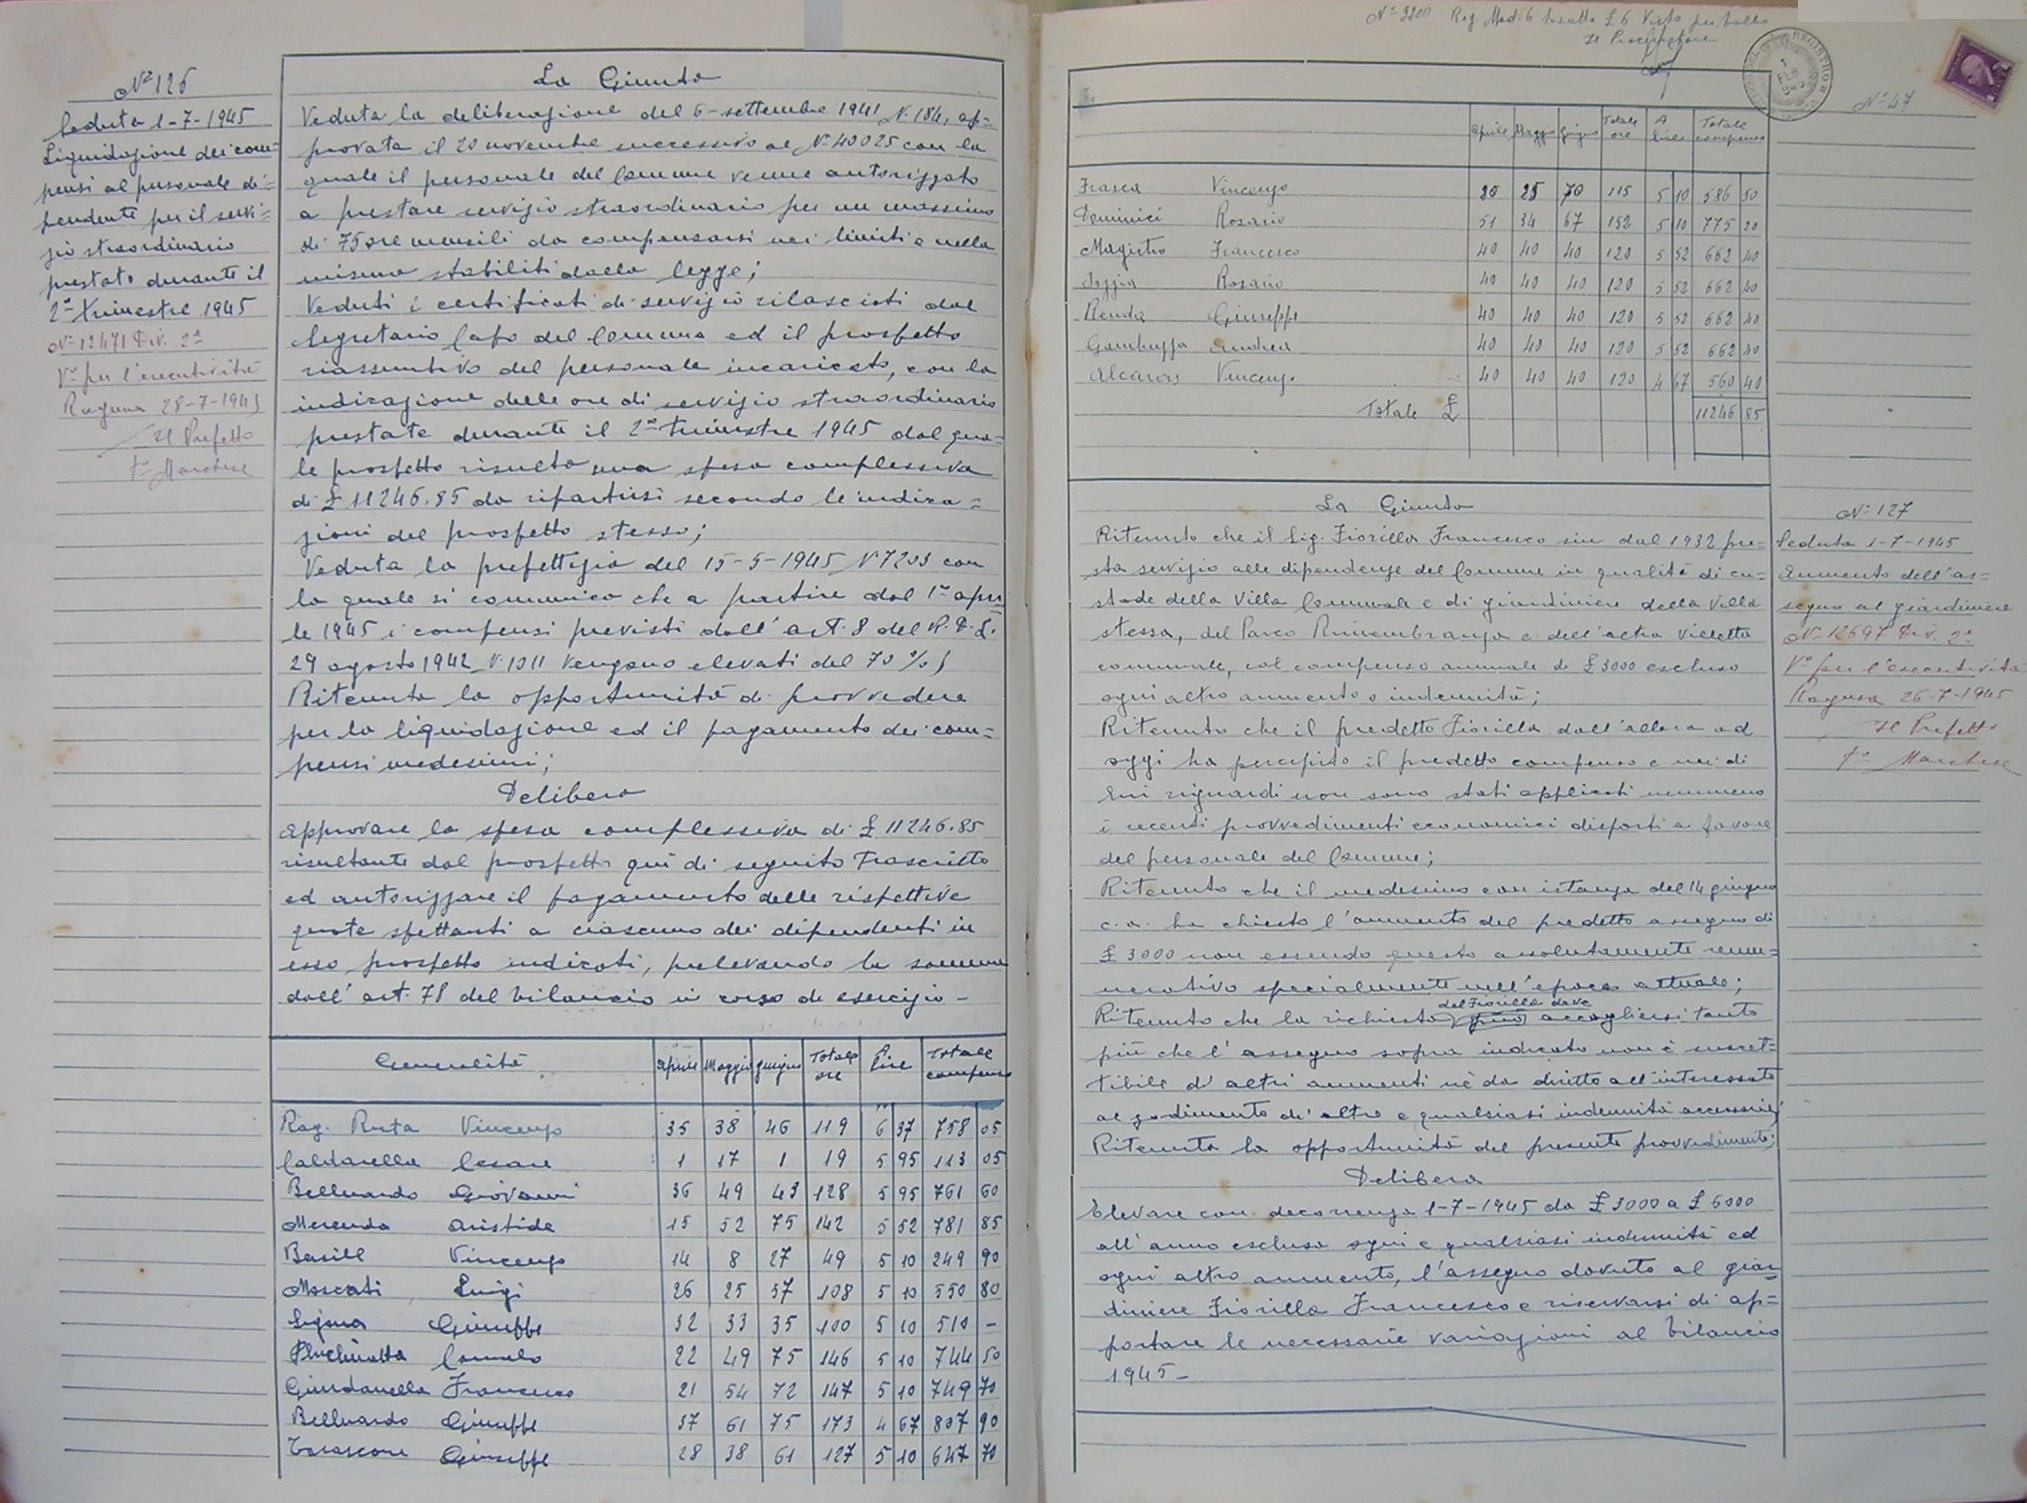 Nº 126
Seduta 1-7-1945
Liquidazione dei com=
pensi al personale di=
pendente per il servi=
zio straordinario
prestato durante il
2º trimestre 1945
Nº 12471 Div. 2ª
Vº per l'esecutività
Ragusa 28-7-1945
Il Prefetto
fº Marchese
La Giunta
Veduta la deliberazione del 6-settembre 1941 N. 184, ap=
provata il 20 novembre successivo al Nº 40025 con la
quale il personale del Comune venne autorizzato
a prestare servizio straordinario per un massimo
di 75 ore mensili da compensarsi nei limiti e nella
misura stabiliti dalla legge;
Veduti i certificati di servizio rilasciati dal
Segretario Capo del Comune ed il prospetto
riassuntivo del personale incaricato, con la
indicazione delle ore di servizio straordinario
prestate durante il 2º trimestre 1945 dal qua=
le prospetto risulta una spesa complessiva
di £ 11246.85 da ripartirsi secondo le indica=
zioni del prospetto stesso;
Veduta la prefettizia del 15-5-1945 Nº 7203 con
la quale si comunica che a partire dal 1º apri
le 1945 i compensi previsti dall'art. 8 del R.D.L.
29 agosto 1942 N. 1011 vengono elevati del 70%;
Ritenuta la opportunità di provvedere
per la liquidazione ed il pagamento dei com=
pensi medesimi;
Delibera
Approvare la spesa complessiva di £ 11246.85
risultante dal prospetto qui di seguito trascritto
ed autorizzare il pagamento delle rispettive
quote spettanti a ciascuno dei dipendenti in
esso prospetto indicati, prelevando la somma
dall'art. 78 del bilancio in corso di esercizio -
Generalità Aprile Maggio Giugno Totale ore A Lire Totale compenso
Rag. Ruta Vincenzo 35 38 46 119 6 37 758 05
Caldarella Cesare 1 17 1 19 5 95 113 05
Belluardo Giovanni 36 49 43 128 5 95 761 60
Merenda Aristide 15 52 75 142 5 52 781 85
Basile Vincenzo 14 8 27 49 5 10 249 90
Moscati Luigi 26 25 57 108 5 10 550 80
Giuseppe 32 33 35 100 5 10 510 -
Pluchinotta Carmelo 22 49 75 146 5 10 744 50
Giurdanella Francesco 21 54 72 147 5 10 749 70
Belluardo Giuseppe 37 61 75 173 4 67 807 90
Tarascone Giuseppe 28 38 61 127 5 10 647 70
Nº 3200 Reg. Mod. 6 Esatte £ 6 Visto per bollo
Il Procuratore
REGISTRO
Nº 47
Aprile Maggio Giugno Totale ore A Lire Totale compenso
Frasca Vincenzo 20 25 70 115 5 10 586 50
Dominici Rosario 51 34 67 152 5 10 775 20
Magistro Francesco 40 40 40 120 5 52 662 40
Rosario 40 40 40 120 5 52 662 40
Renda Giuseppe 40 40 40 120 5 52 662 40
Gambuzza Andrea 40 40 40 120 5 52 662 40
Vincenzo 40 40 40 120 4 67 560 40
Totale £ 11246 85
La Giunta
Ritenuto che il Sig. Fiorilla Francesco sin dal 1932 pre=
sta servizio alle dipendenze del Comune in qualità di cu=
stode della Villa Comunale e di giardiniere della Villa
stessa, del Parco Rimembranza e dell'altra Villetta
comunale, col compenso annuale di £ 3000 escluso
ogni altro aumento o indennità;
Ritenuto che il predetto Fiorilla dall'allora ad
oggi ha percepito il predetto compenso e nei di
lui riguardi non sono stati applicati nemmeno
i recenti provvedimenti economici disposti a favore
del personale del Comune;
Ritenuto che il medesimo con istanza del 14 giugno
c.a. ha chiesto l'aumento del predetto assegno di
£ 3000 non essendo questo assolutamente remu=
nerativo specialmente nell'epoca attuale;
del Fiorilla deve
Ritenuto che la richiesta può accogliersi tanto
più che l'assegno sopra indicato non è suscet=
tibile d'altri aumenti nè da diritto all'interessato
al godimento di altre e qualsiasi indennità accessorie;
Ritenuta la opportunità del presente provvedimento;
Delibera
Elevare con decorrenza 1-7-1945 da £ 3000 a £ 6000
all'anno escluso ogni e qualsiasi indennità ed
ogni altro aumento, l'assegno dovuto al giar=
diniere Fiorilla Francesco e riservarsi di ap=
portare le necessarie variazioni al bilancio
1945-
Nº 127
Seduta 1-7-1945
Aumento dell'as=
segno al giardiniere
Nº 12697 Div. 2ª
Vº per l'esecutività
Ragusa 26-7-1945
Il Prefetto
fº Marchese